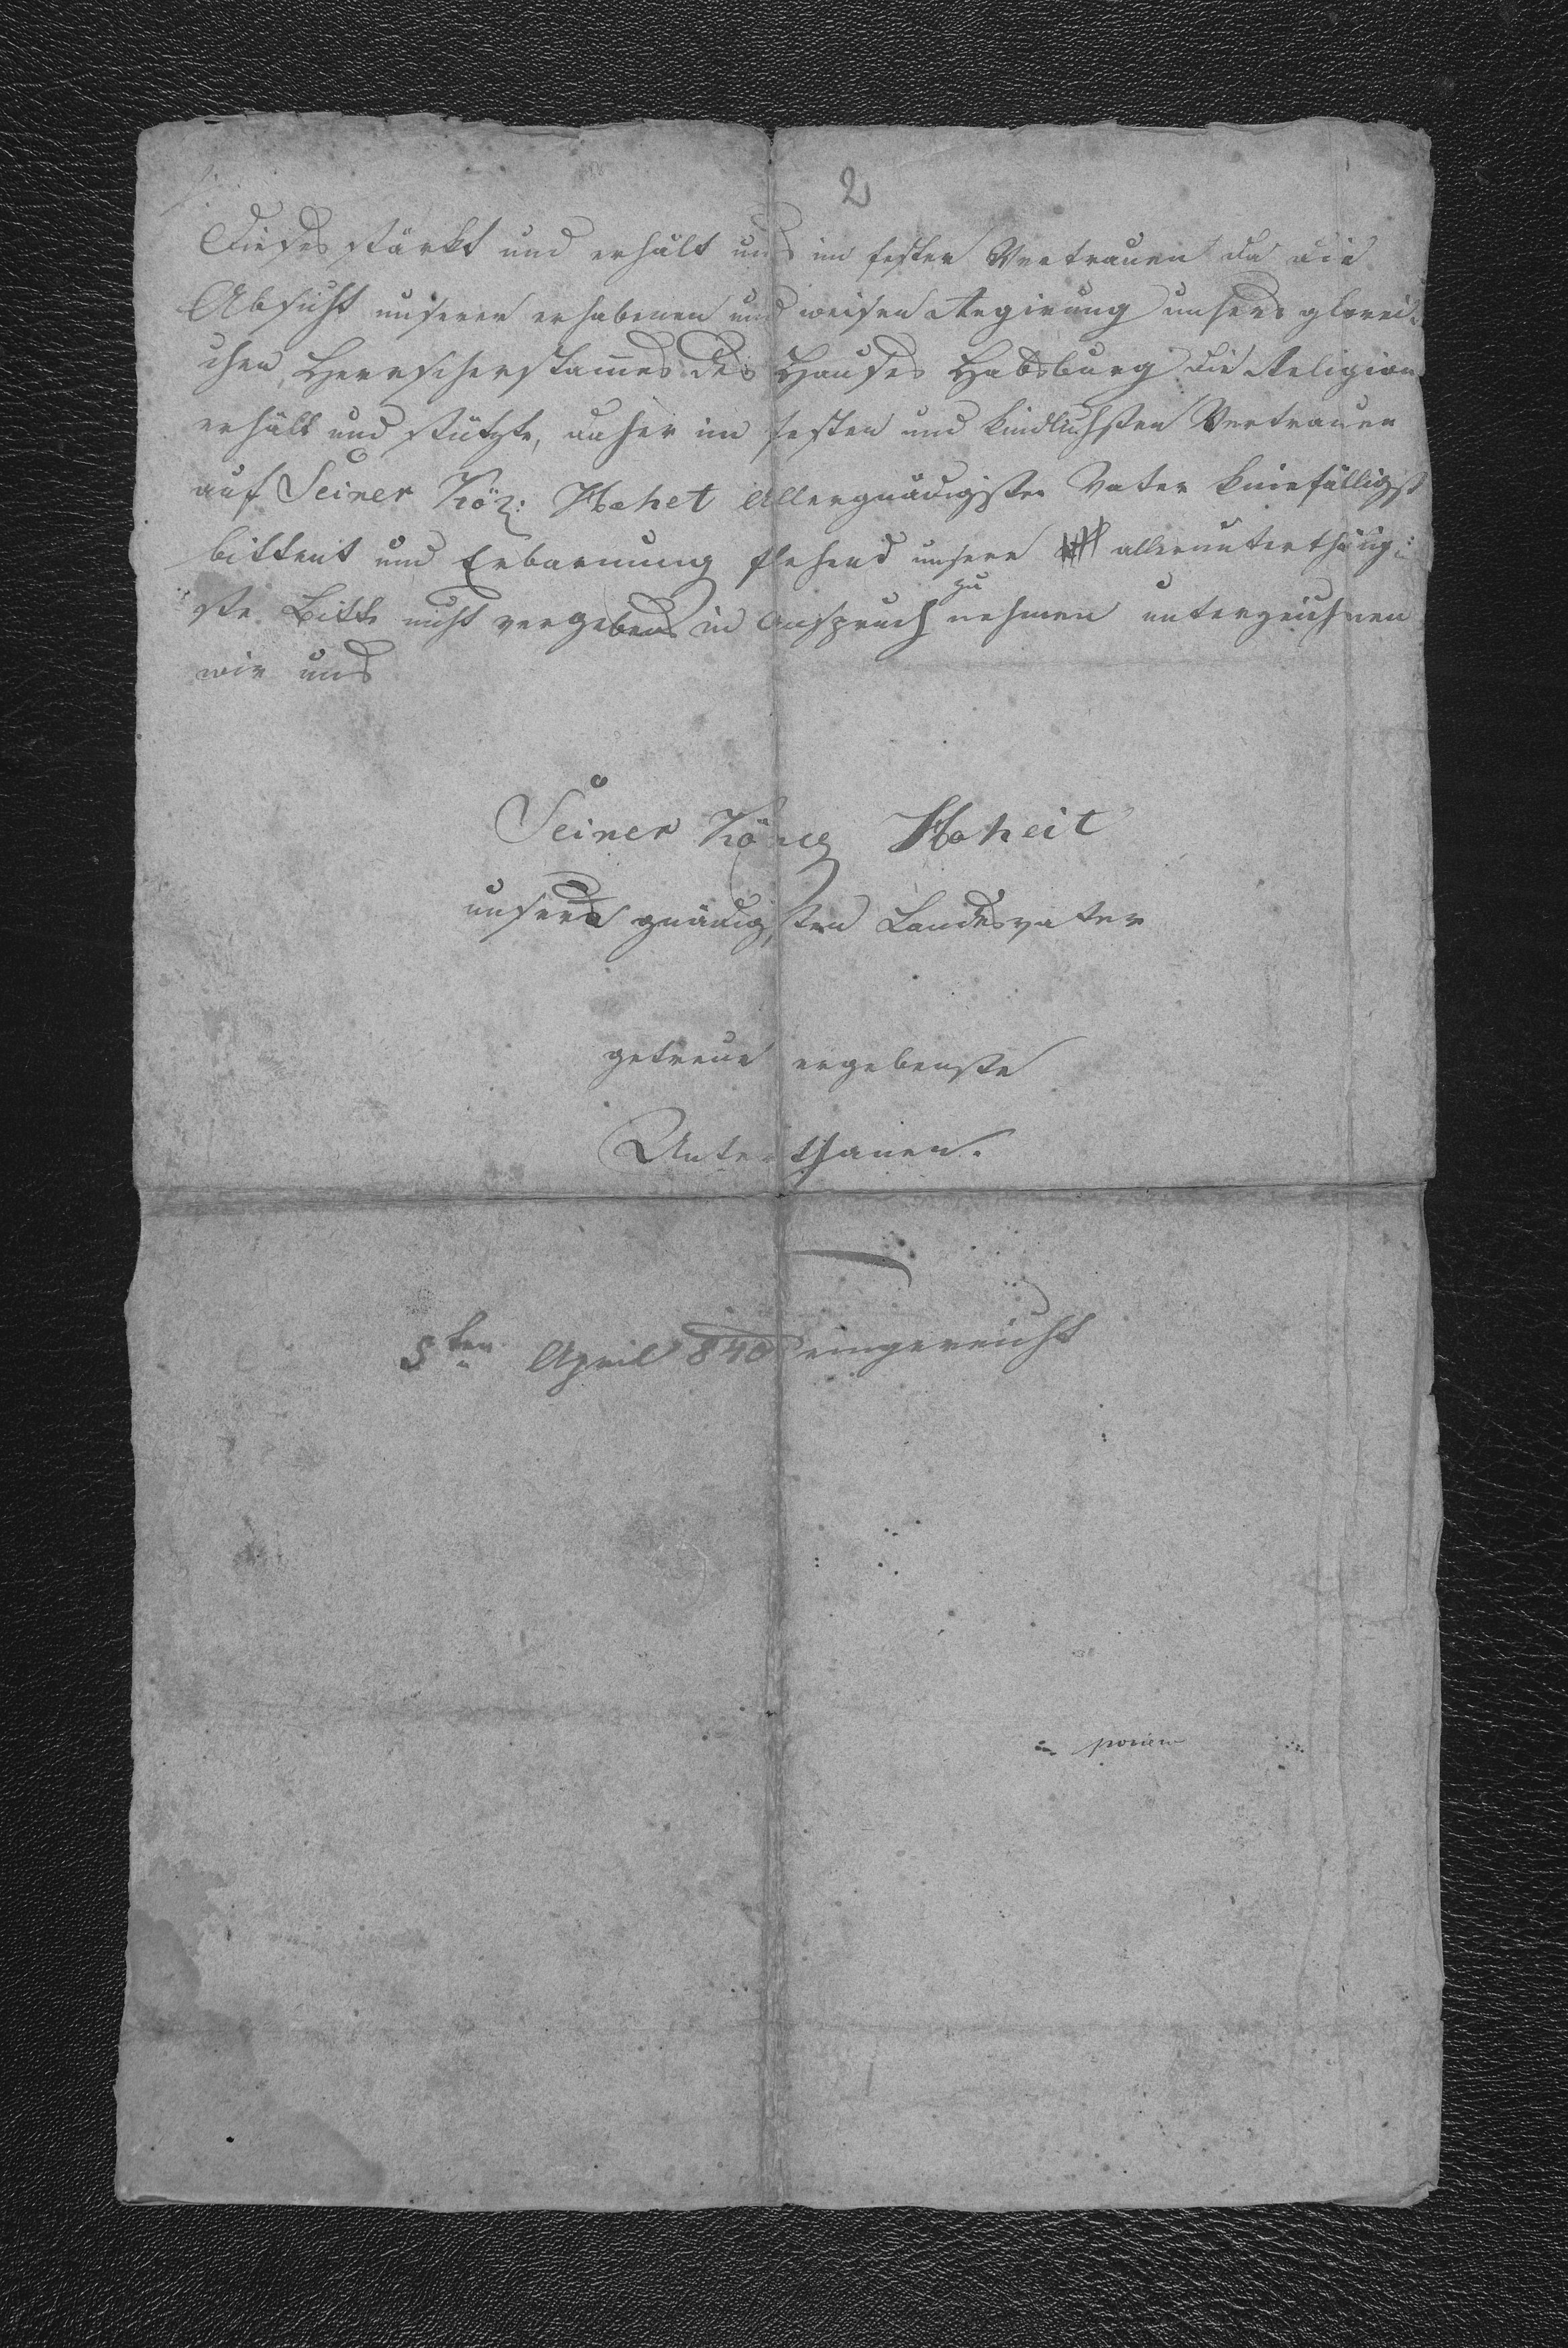 2
Dieses stärkt und erhält uns im festen Vertrauen da die
Absicht unserer erhabenen und weisen Regirung unsers glorei-
chen Herrscherstam̄es des Hauses Habsburg die Religion
erhält und stützte, daher im festen und kindlichsten Vertrauen
auf Seiner Kög: Hohet Allergnädigster Vater kniefälligst
bittent und Erbarmung flehend unsere allerunterthänig-
ste Bitte nicht vergebens in Anspruch zu nehmen unterzeichnen
wir uns
Seiner König Hoheit
unsers gnädigsten Landesvater
getreue ergebenste
Unterthanen.
8ten April 840 eingereicht